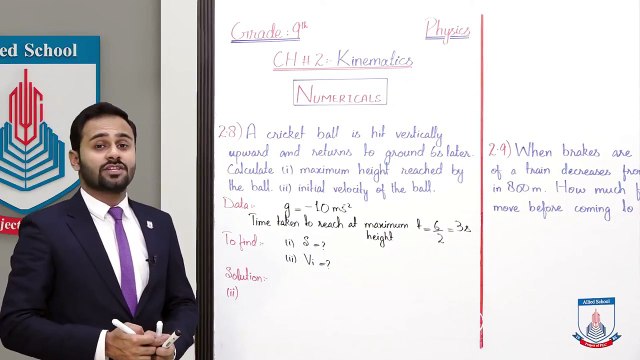 Allied School
Grade: 9th Physics
CH # 2:- Kinematics
NUMERICALS
2.8) A cricket ball is hit vertically
upward and returns to ground 6s later.
Calculate (i) maximum height reached by
the ball. (ii) initial velocity of the ball.
Data:-
g = -10 ms²
Time taken to reach at maximum height t = 6/2 = 3s
To find:- (i) S = ?
(ii) Vi = ?
Solution:-
(ii)
2.9) When brakes are
of a train decreases from
in 800 m. How much f
move before coming to
Allied School